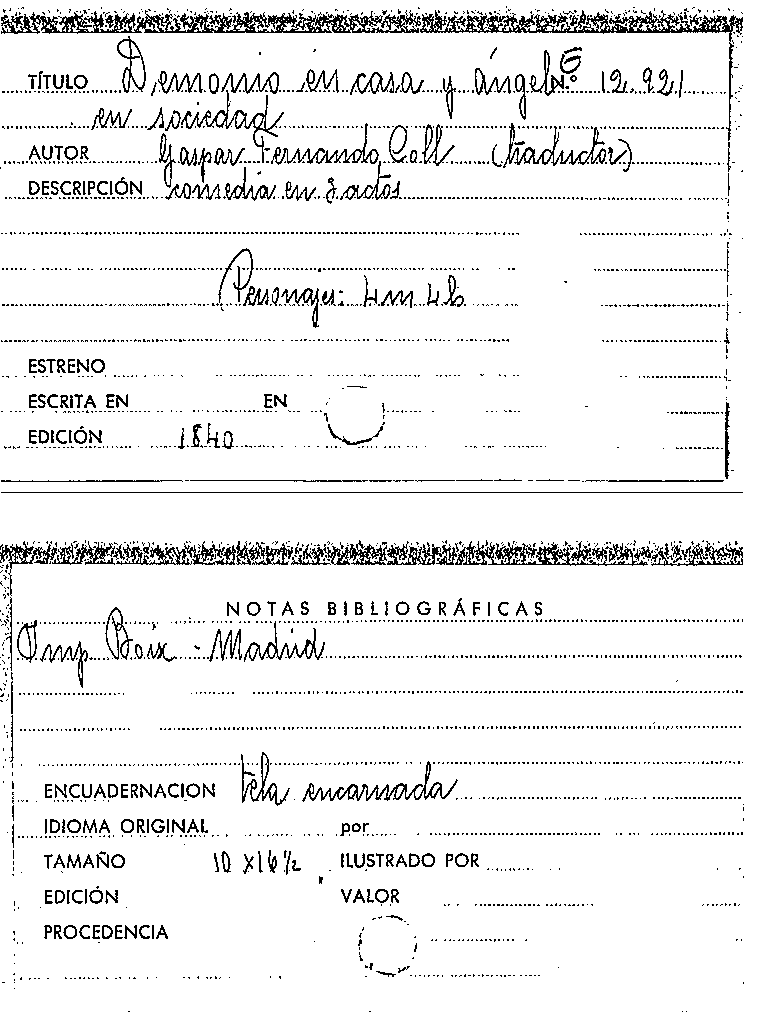 TÍTULO Demonio en casa y ángel N.º 12.921
en sociedad
AUTOR Gaspar Fernando Coll (traductor)
DESCRIPCIÓN comedia en 3 actos
Personajes: 4m 4h
ESTRENO
ESCRITA EN EN
EDICIÓN 1840
NOTAS BIBLIOGRÁFICAS
Imp Boix - Madrid
ENCUADERNACION tela encarnada
IDIOMA ORIGINAL por
TAMAÑO 10 X 16 1/2 ILUSTRADO POR
EDICIÓN VALOR
PROCEDENCIA